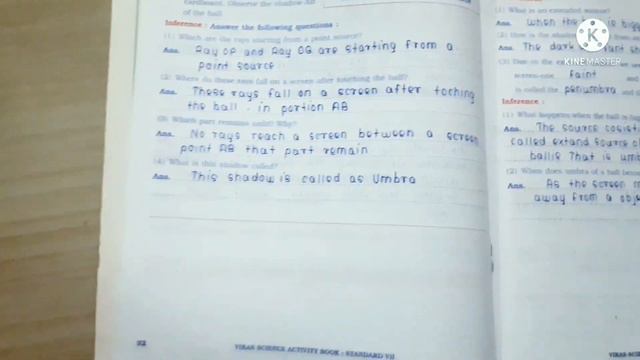 cardboard. Observe the shadow AB
of the ball
Inference : Answer the following questions :
(1) Which are the rays starting from a point source?
Ans. Ray OP and Ray OG are starting from a
point source
(2) Where do these rays fall on a screen after touching the ball?
Ans. These rays fall on a screen after toching
the ball. in portion AB
(3) Which part remains unlit? Why?
Ans. No rays reach a screen between a screen
point AB that part remain
(4) What is this shadow called?
Ans. This shadow is called as Umbra
22
VIKAS SCIENCE ACTIVITY BOOK : STANDARD VII
(1) What is an extended source?
Ans. When the is bigg
(2) How is the shadow
Ans. The dark
(3) Due to the
screen-one faint and
is called the penumbra and
Inference :
(1) What happens when the ball is
Ans. The source
called extand source
ball is That is umb
(2) When does umbra of a ball
Ans. As the screen m
away from a obje
VIKAS SCIENCE
KINEMASTER